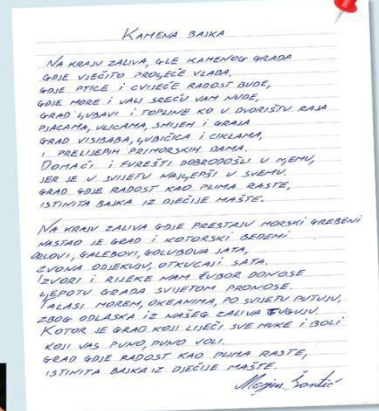 KAMENA BAJKA
NA KRAJU ZALIVA, GLE KAMENOG GRADA
GDJE VJEČITO PROLJEĆE VLADA,
GDJE PTICE I CVIJEĆE RADOST BUDE,
GDJE MORE I VALI SREĆU VAM NUDE,
GRAD LJUBAVI I TOPLINE KO U DVORIŠTU RAJA
PJACAMA, ULICAMA, SMIJEH I GRAJA
GRAD VISIBABA, LJUBIČICA I CIKLAMA,
I PRELIJEPIH PRIMORSKIH DAMA.
DOMAĆI I FUREŠTI DOBRODOŠLI U NJEMU,
JER JE U SVIJETU NAJLJEPŠI U SVEMU.
GRAD GDJE RADOST KAO PLIMA RASTE,
ISTINITA BAJKA IZ DJEČIJE MAŠTE.
NA KRAJU ZALIVA GDJE PRESTAJU MORSKI GREBENI
NASTAO JE GRAD I KOTORSKI BEDEMI
ORLOVI, GALEBOVI, GOLUBOVA JATA,
ZVONA ODJEKUJU, OTKUCAJI SATA.
IZVORI I RIJEKE NAM ŽUBOR DONOSE
LJEPOTU GRADA SVIJETOM PRONOSE.
TALASI MOREM, OKEANIMA, PO SVIJETU PUTUJU,
ZBOG ODLASKA IZ NAŠEG ZALIVA TUGUJU.
KOTOR JE GRAD KOJI LIJEČI SVE MUKE I BOLI
KOJI VAS PUNO, PUNO VOLI.
GRAD GDJE RADOST KAO PLIMA RASTE,
ISTINITA BAJKA IZ DJEČIJE MAŠTE.